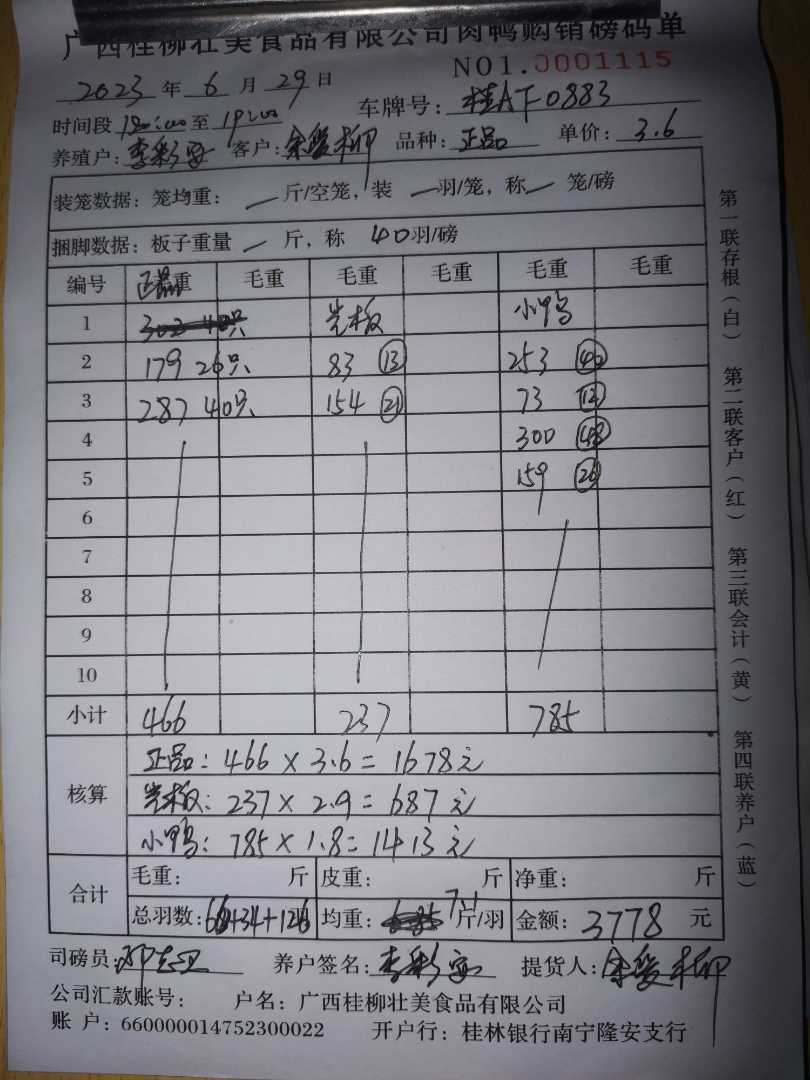 广西桂柳壮美食品有限公司肉鸭购销磅码单
NO1.0001115
2023 年 6 月 29 日
车牌号: 桂AF0883
时间段 至 19:00
养殖户: 客户: 品种: 正品 单价: 3.6
装笼数据: 笼均重: 斤/空笼, 装 羽/笼, 称 笼/磅
捆脚数据: 板子重量 斤, 称 40羽/磅
编号 正品重 毛重 毛重 毛重 毛重 毛重
1 光板 小鸭
2 179 26只 83 13 253 40
3 287 40只 154 21 73 12
4 300 48
5 159 26
6
7
8
9
10
小计 466 237 785
核算
正品: 466 × 3.6 = 1678元
光板: 237 × 2.9 = 687元
小鸭: 785 × 1.8 = 1413元
合计
毛重: 斤 皮重: 斤 净重: 斤
总羽数: 66+34+126 羽 均重: 斤/羽 金额: 3778 元
司磅员: 养户签名: 提货人:
公司汇款账号: 户名: 广西桂柳壮美食品有限公司
账 户: 660000014752300022 开户行: 桂林银行南宁隆安支行
第一联存根(白)
第二联客户(红)
第三联会计(黄)
第四联养户(蓝)